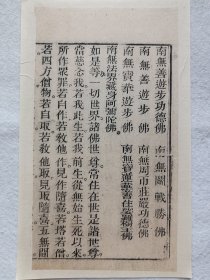 南無善遊步功德佛
南無鬪戰勝佛
南無善遊步佛
南無周帀莊嚴功德佛
南無寶華遊步佛
南無寶蓮華善住娑羅樹王佛
南無法界藏身阿彌陀佛
如是等一切世界諸佛世尊常住在世是諸世尊
當慈念我若我此生若我前生從無始生死以來
所作衆罪若自作若教他作見作隨喜若塔若僧
若四方僧物若自取若教他取見取隨喜五無間